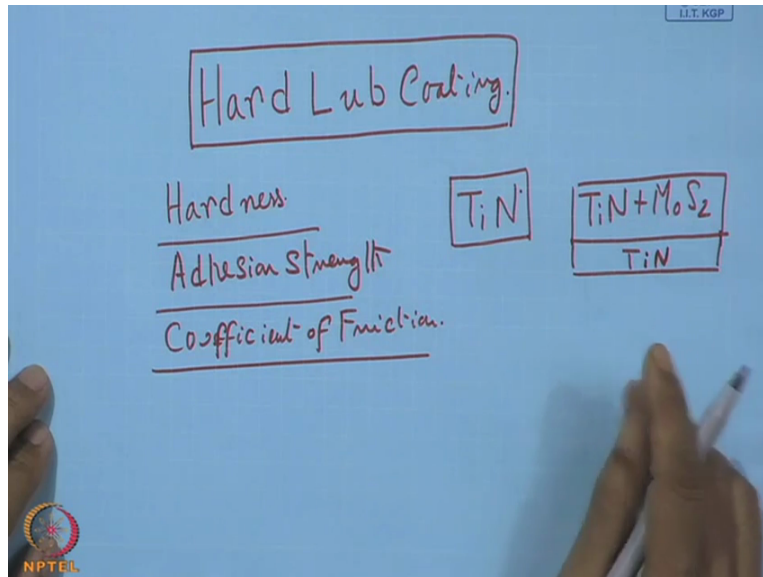 I.I.T. KGP
Hard Lub Coating.
Hardness.
Adhesion Strength
Coefficient of Friction.
TiN
TiN+MoS2
TiN
NPTEL